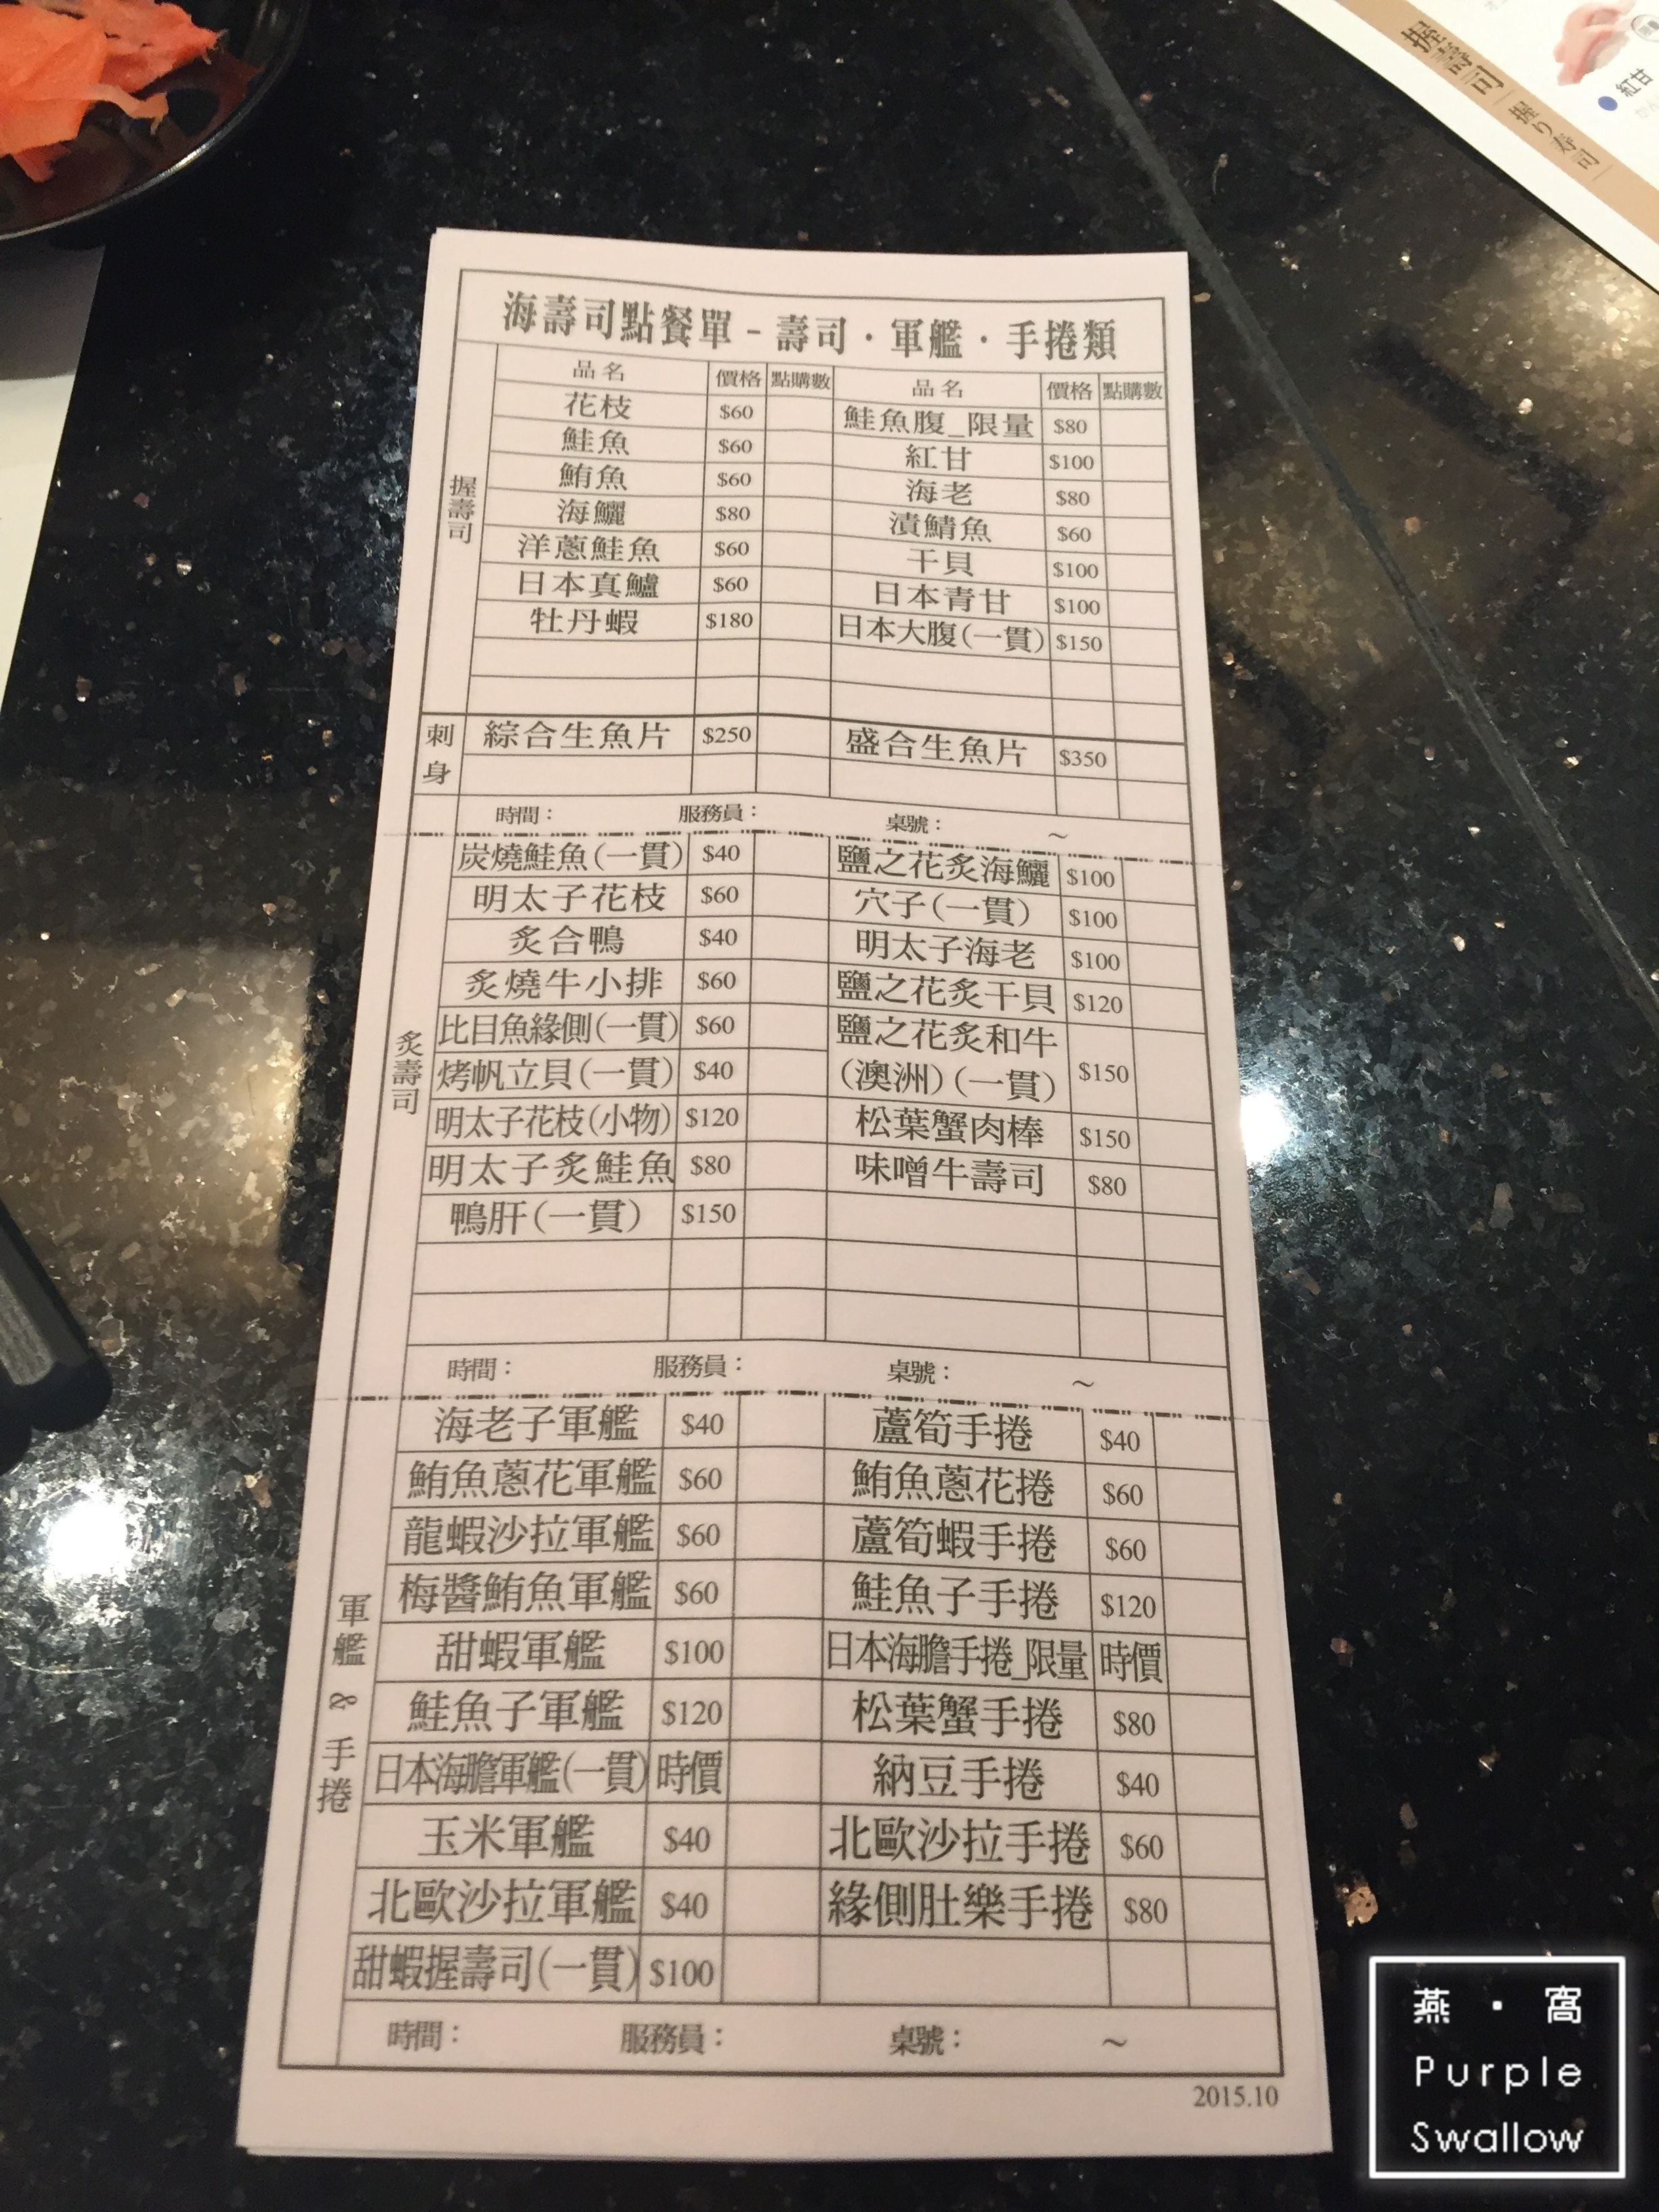 握壽司 握り寿司
紅甘
海壽司點餐單 - 壽司 · 軍艦 · 手捲類
品名 價格 點購數 品名 價格 點購數
握壽司
花枝 $60 鮭魚腹_限量 $80
鮭魚 $60 紅甘 $100
鮪魚 $60 海老 $80
海鱺 $80 漬鯖魚 $60
洋蔥鮭魚 $60 干貝 $100
日本真鱸 $60 日本青甘 $100
牡丹蝦 $180 日本大腹(一貫) $150
刺身
綜合生魚片 $250 盛合生魚片 $350
時間： 服務員： 桌號： ~
炙壽司
炭燒鮭魚(一貫) $40 鹽之花炙海鱺 $100
明太子花枝 $60 穴子(一貫) $100
炙合鴨 $40 明太子海老 $100
炙燒牛小排 $60 鹽之花炙干貝 $120
比目魚緣側(一貫) $60 鹽之花炙和牛
烤帆立貝(一貫) $40 (澳洲)(一貫) $150
明太子花枝(小物) $120 松葉蟹肉棒 $150
明太子炙鮭魚 $80 味噌牛壽司 $80
鴨肝(一貫) $150
時間： 服務員： 桌號： ~
軍艦 & 手捲
海老子軍艦 $40 蘆筍手捲 $40
鮪魚蔥花軍艦 $60 鮪魚蔥花捲 $60
龍蝦沙拉軍艦 $60 蘆筍蝦手捲 $60
梅醬鮪魚軍艦 $60 鮭魚子手捲 $120
甜蝦軍艦 $100 日本海膽手捲_限量 時價
鮭魚子軍艦 $120 松葉蟹手捲 $80
日本海膽軍艦(一貫) 時價 納豆手捲 $40
玉米軍艦 $40 北歐沙拉手捲 $60
北歐沙拉軍艦 $40 緣側肚樂手捲 $80
甜蝦握壽司(一貫) $100
時間： 服務員： 桌號： ~
2015.10
燕 · 窩
Purple
Swallow